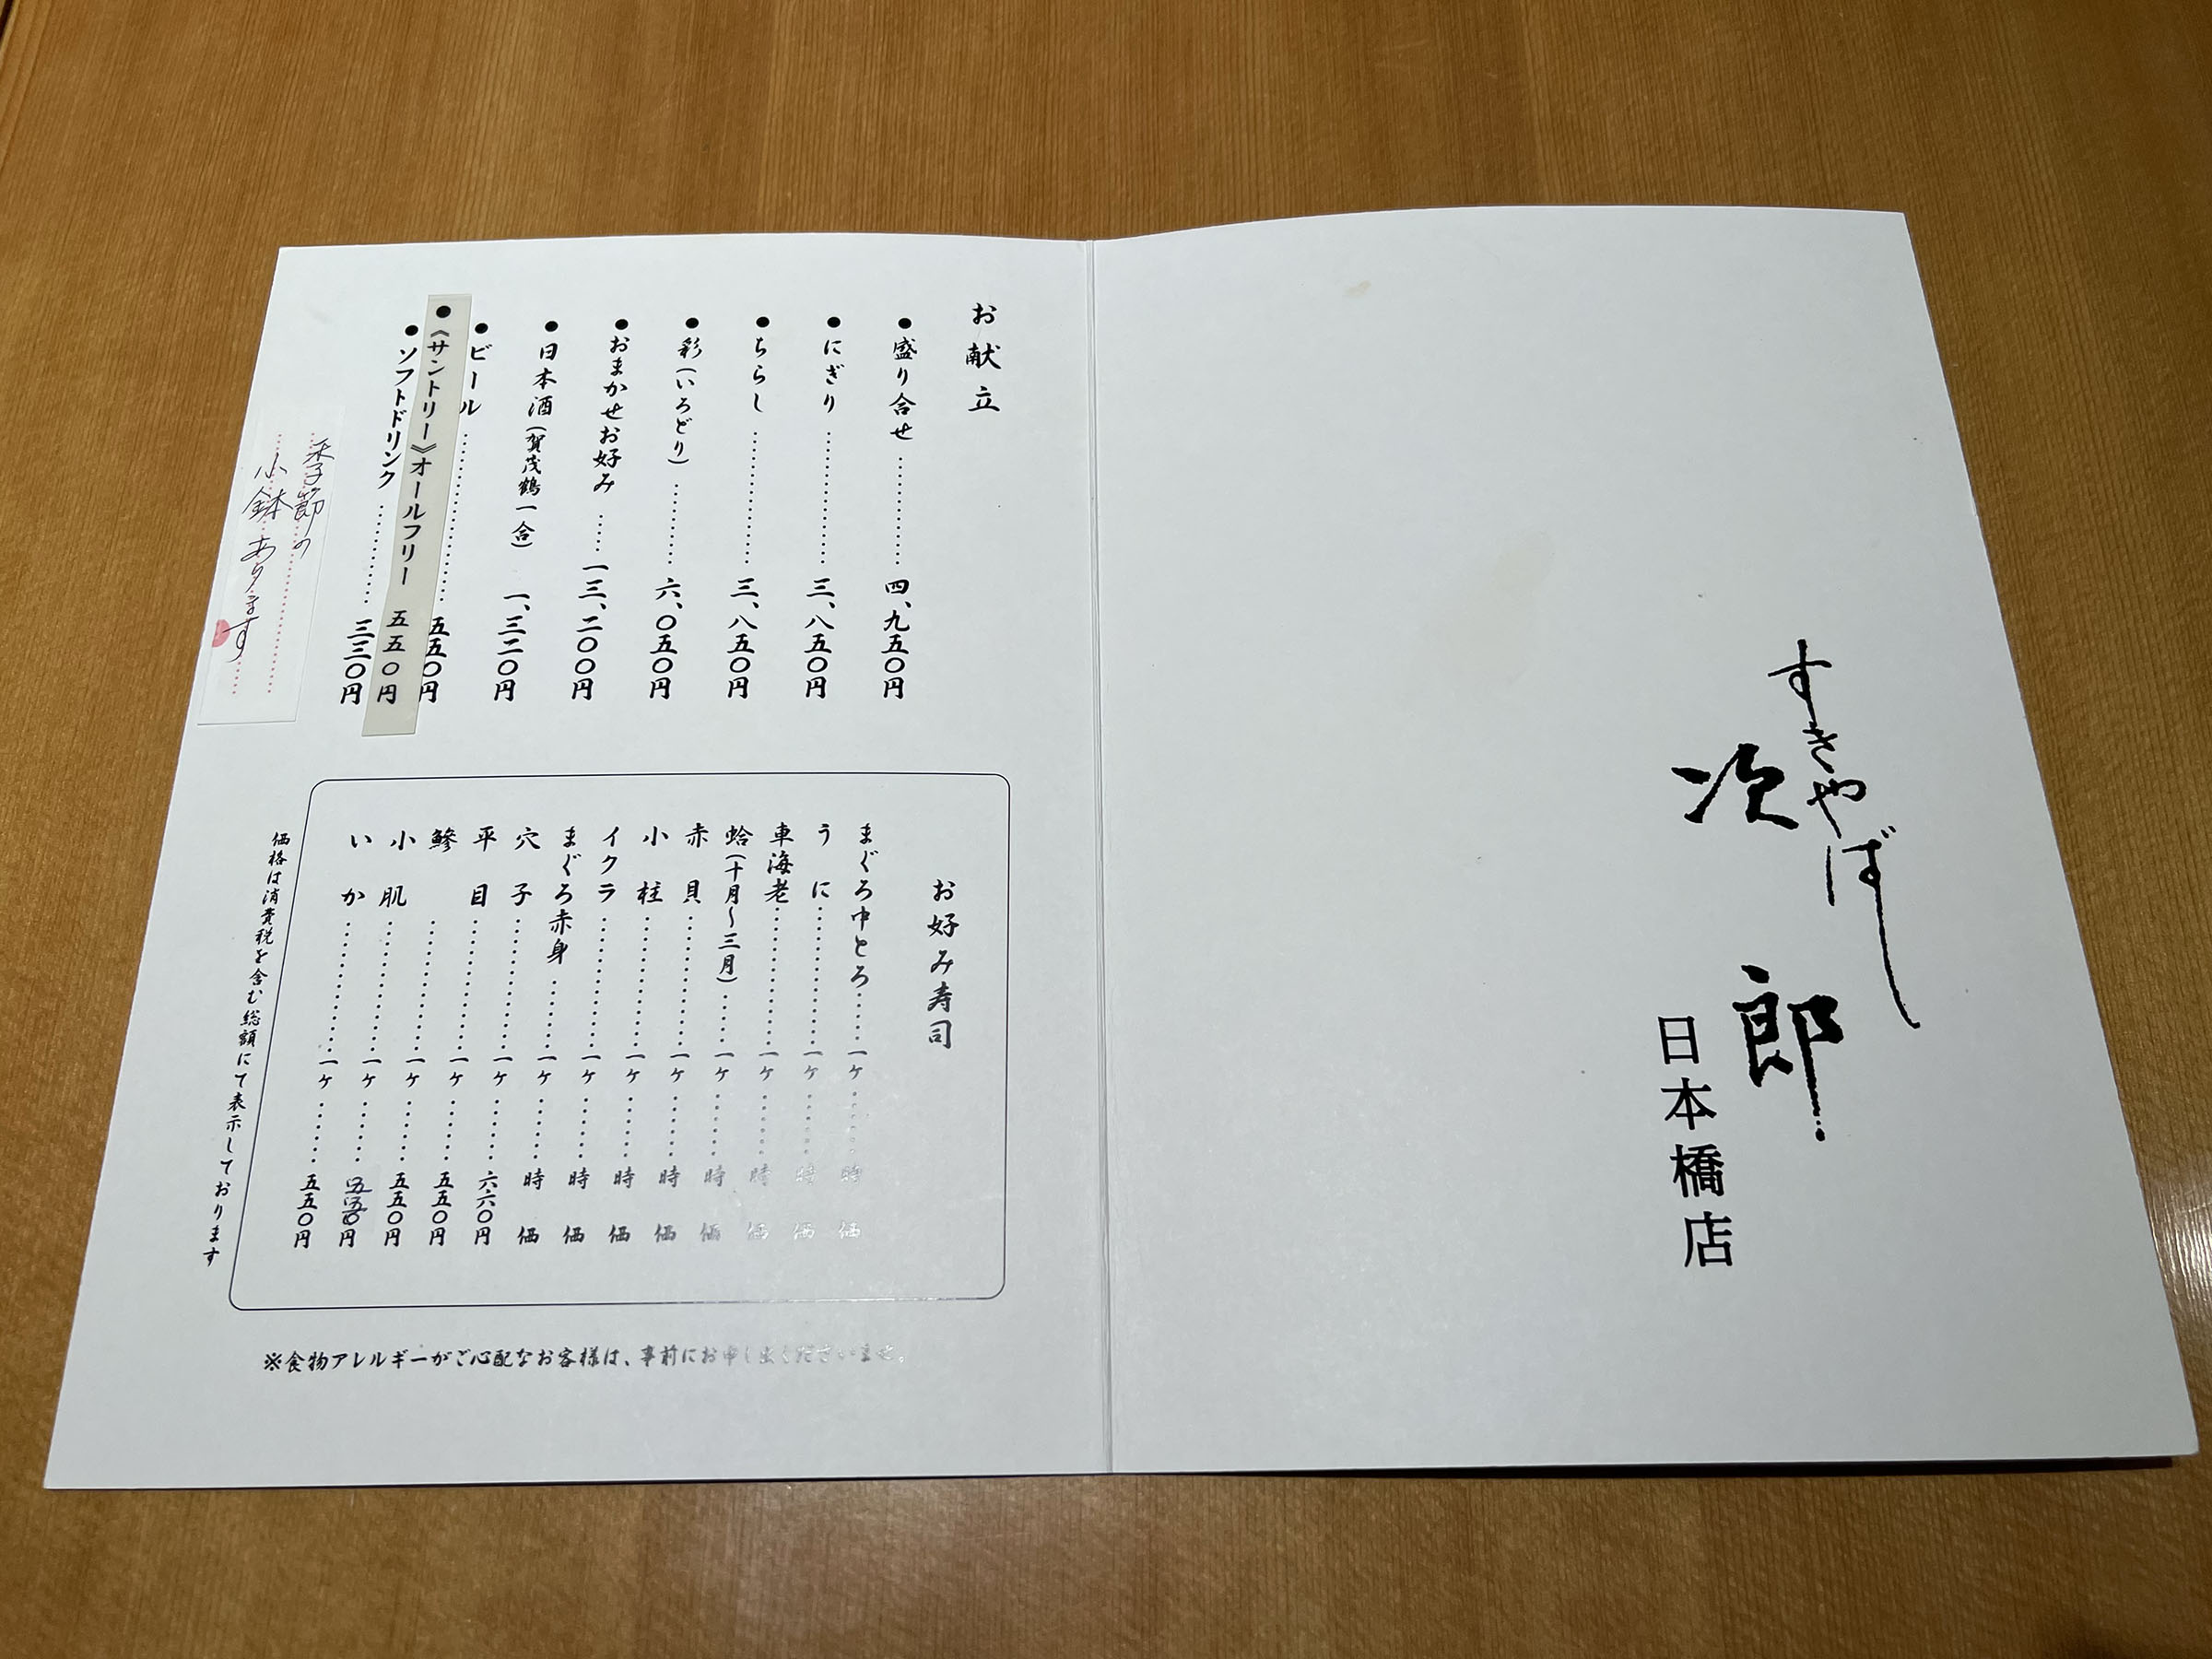 すきやばし
次郎
日本橋店
お献立
●盛り合せ…………四、九五〇円
●にぎり…………三、八五〇円
●ちらし…………三、八五〇円
●彩(いろどり)…………六、〇五〇円
●おまかせお好み……一三、二〇〇円
●日本酒(賀茂鶴一合) 一、三二〇円
●ビール…………五五〇円
●《サントリー》オールフリー 五五〇円
●ソフトドリンク…………三三〇円
季節の
小鉢あります
お好み寿司
まぐろ中とろ……一ケ……時価
うに……一ケ……時価
車海老……一ケ……時価
蛤(十月〜三月)……一ケ……時価
赤貝……一ケ……時価
小柱……一ケ……時価
イクラ……一ケ……時価
まぐろ赤身……一ケ……時価
穴子……一ケ……六六〇円
平目……一ケ……五五〇円
鰺……一ケ……五五〇円
小肌……一ケ……五五〇円
いか……一ケ……五五〇円
価格は消費税を含む総額にて表示しております
※食物アレルギーがご心配なお客様は、事前にお申し出くださいませ。